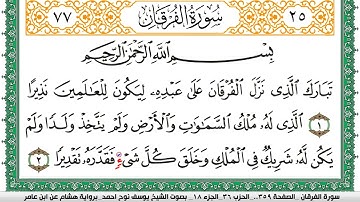 ٧٧ سُورَةُ الْفُرْقَانِ ٢٥
بِسْمِ اللَّهِ الرَّحْمَٰنِ الرَّحِيمِ
تَبَارَكَ الَّذِى نَزَّلَ الْفُرْقَانَ عَلَىٰ عَبْدِهِ لِيَكُونَ لِلْعَالَمِينَ نَذِيرًا
١ الَّذِى لَهُ مُلْكُ السَّمَٰوَٰتِ وَالْأَرْضِ وَلَمْ يَتَّخِذْ وَلَدًا وَلَمْ
يَكُن لَّهُ شَرِيكٌ فِى الْمُلْكِ وَخَلَقَ كُلَّ شَىْءٍ فَقَدَّرَهُ تَقْدِيرًا ٢
سورة الفرقان .. الصفحة ٣٥٩.. الحزب ٣٦ .الجزء ١٨ .. بصوت الشيخ يوسف نوح احمد .. برواية هشام عن ابن عامر